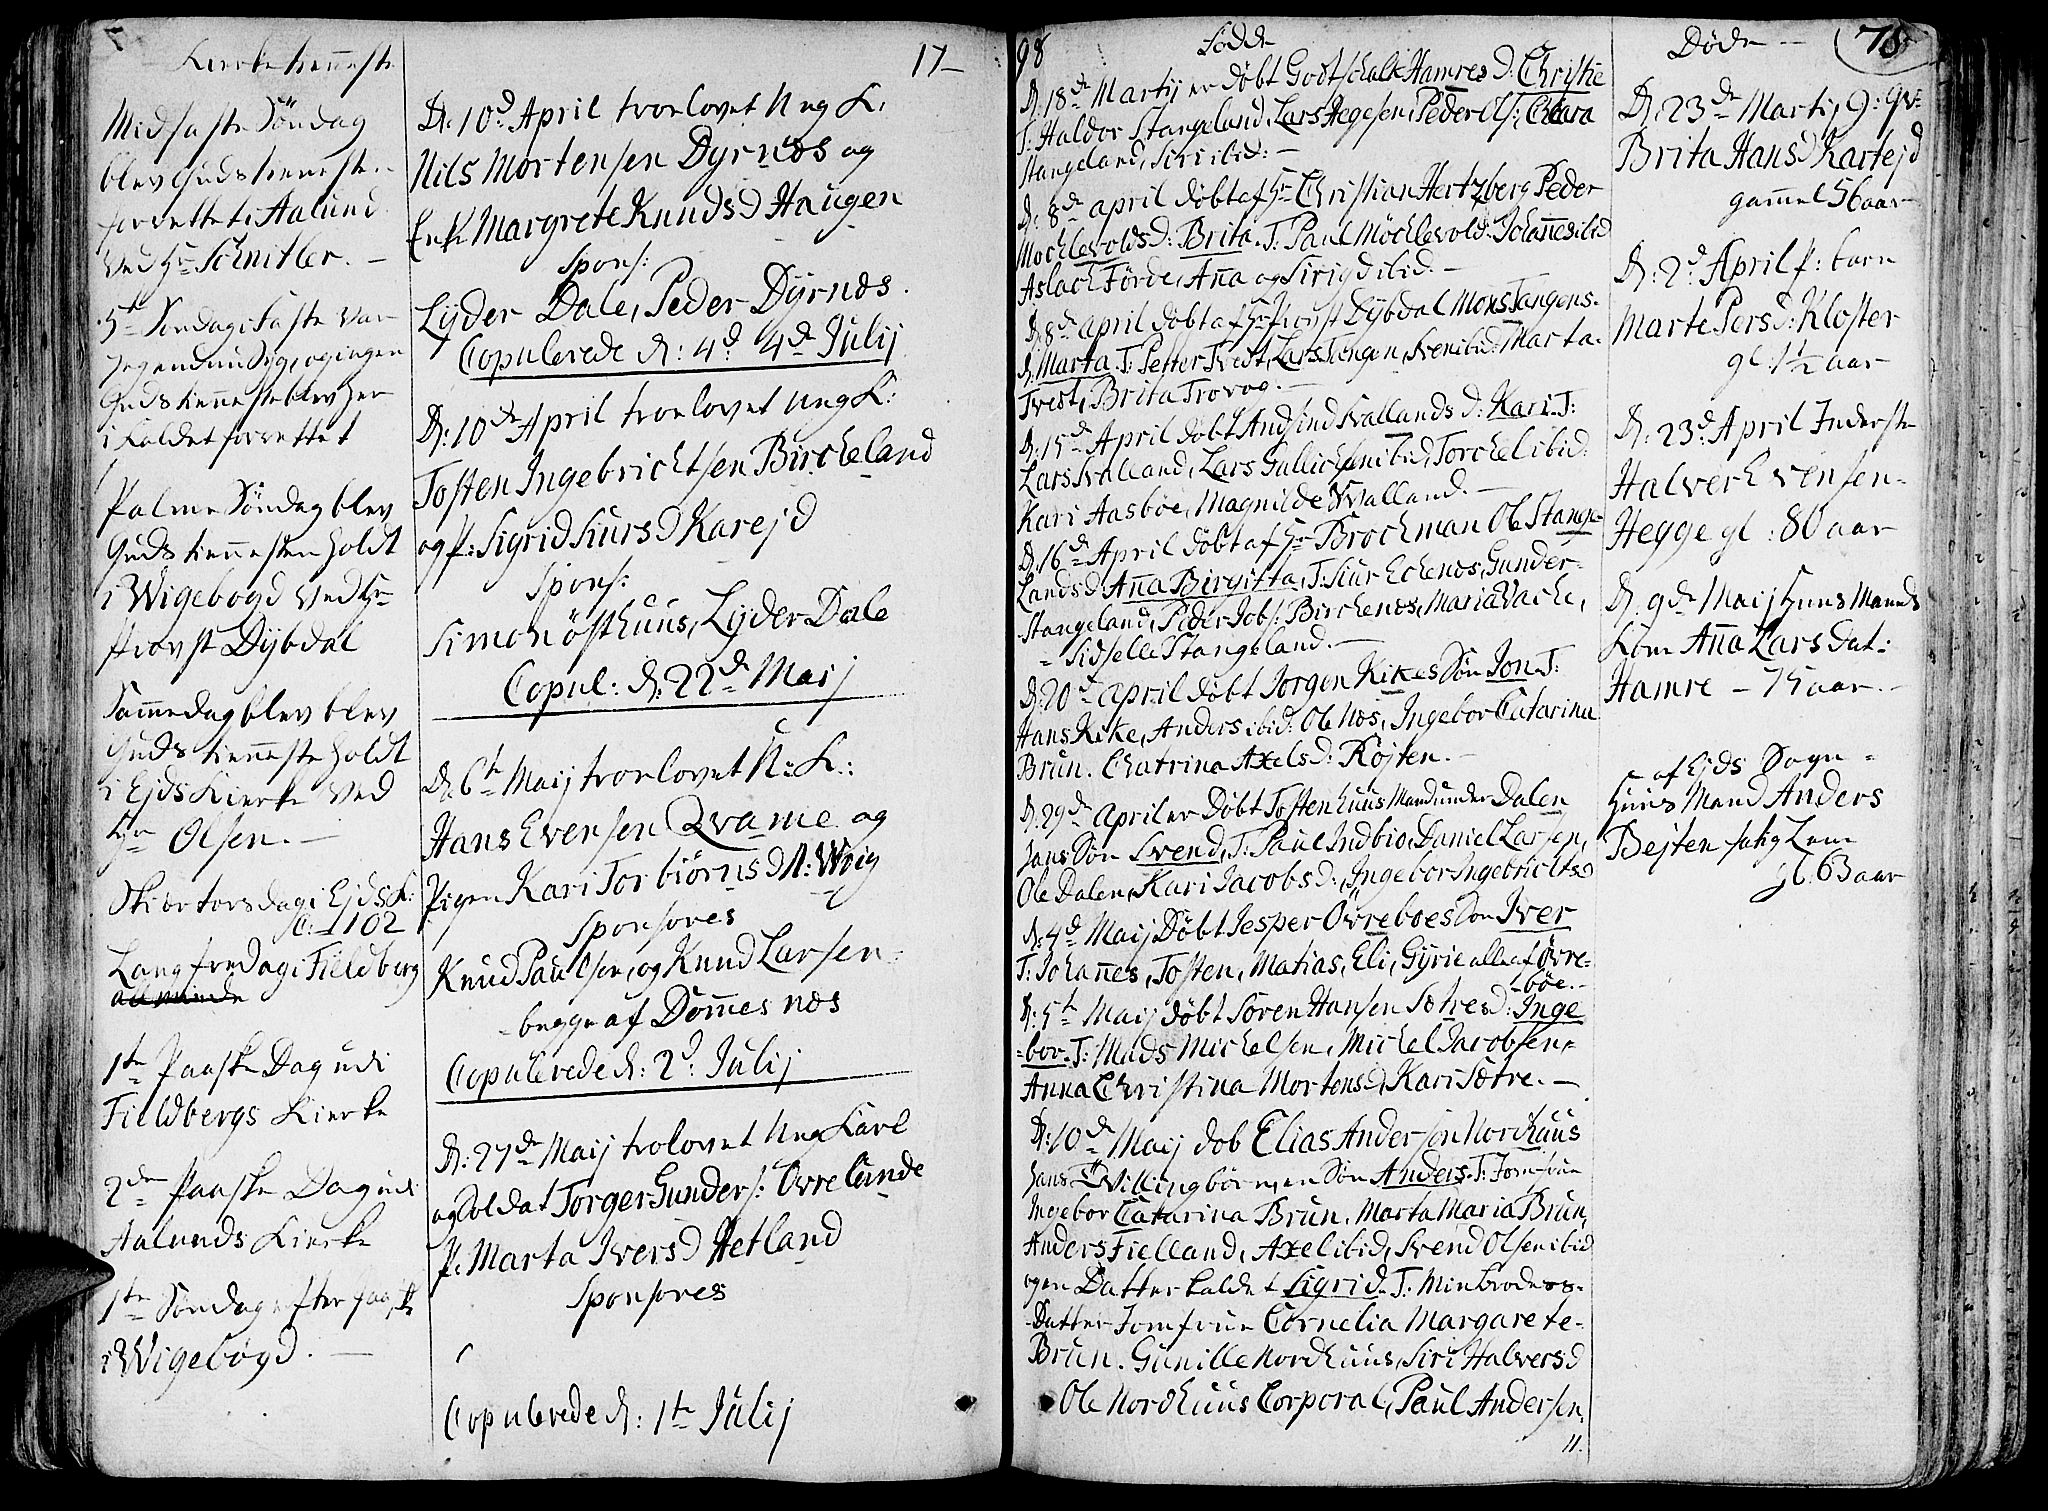 Kierketienneste
Midfaste Söndag
blev Gudstienneste
forrettet i Aalund
ved Hr Schnitler. –
5te Söndag i Faste var
jeg endnu Syg, og ingen
Gudstienneste blev her
i Kaldet forrettet
Palme Söndag blev
Gudstiennesten holdt
i Wigebogd ved Hr
Provst Dybdal
Samme dag blev blev
Gudstienneste holdt
i Ejds Kierke ved
Hr Olsen. –
Skiertorsdag i Ejds K:
C: 1102
Langfredag i Fieldberg
1te Paaske Dag udi
Fieldbergs Kierke
2den Paaske Dag udi
Aalunds Kierke
1te Söndag efter Paaske
i Wigebögd. –
17–
D: 10d April trorlovet Ung K.
Nils Mortensen Dyrnæs og
Enke Margrete Knudsd Haugen
Spons:
Lyder Dale, Peder Dyrnæs.
Copulerede d: 4d 4de Julij
D: 10de April trorlovet Ung K:
Tosten Ingebrichtsen Bircheland
og P: Sigrid Siursd Karejd
Spons:
Simon östhuus, Lyder Dale
Copul: d: 22de Maij
D: 6te Maij trorlovet U: K.:
Hans Evensen Qvame og
Pigen Kari Torbiörnsd N: Wrig
Sponsores
Knud Paulsen, og Knud Larsen
begge af Dommesnæs
Copulerede d: 2d Julij
D: 27de Maij trolovet Ung Karl
og Soldat Torger Gunders: Ovrelunde
P. Marta Iversd Hetland
Sponsores
Copulerede d: 1te Julij
98
Födde
D: 18de Martij er Döbt Godtschalk Hamres D: Christie
T: Haldor Stangeland, Lars Hegesen, Peder Ols:, Clara
Stangeland, Siri ibid: –
D: 8de april Döbt af Hr Christian Hertzberg Peder
Mochlevolds d: Brita. T: Paul Möchlevold. Johannes ibid
Aslach Förde, Anna og Sirigd ibid. –
D: 8de april döbt af Hr Provst Dybdal Mons Tangens
d: Marta. T: Petter Tvedt, Lars Tangen, Sven ibid: Marta
Tvedt, Brita Trovog. –
D: 15de April döbt Andsind Svallands d: Kari. T:
Lars Svalland, Lars Gullichsen ibid, Torchel ibid:
Kari Aasböe, Magnilde Svalland. –
D: 16de April döbt af Hr Brochman Ole Stange
Lands d Anna Birgitta, T: Siur Echenæs, Gunder
Stangeland, Peder Jobs: Birchenæs, Maria Vache,
Sidselle Stangeland. –
D: 20de april döbt Jorgen Kikes Sön Jon. T:
Hans Kike, Anders ibid: Ole Næs, Ingebor Catarina
Brun. Chatrina Axelsd: Röjten. –
D: 29de april er Döbt Tosten huusmand under Dalen
hans Sön Svend, T: Paul Indbio, Daniel Larsen,
Ole Dalen, Kari Jacobsd:, Ingebor Ingebrichtsd
d: 4de Maij Döbt Jesper Övreboes Sön Iver
T: Johannes, Tosten, Matias, Eli, Gyrie alle af övre-
böe. –
D: 5te Maij döbt Sören Hansen Sætres d: Inge
bor. T: Mads Michelsen, Michel Jacobsen
Anna Christina Mortensd, Kari Sætre. –
D: 10de Maij döb Elias Andersön Nordhuus
hans Tvillingbörn, en Sön Anders. T: Jomfrue
Ingebor Catarina Brun, Marta Maria Brun,
Anders Fielland, Axel ibid, Svend Olsen ibid
og en Datter kaldet Sigrid. T: Min Broders
Datter Jomfrue Cornelia Margarete
Brun. Gunille Nordhuus, Siri Halversd
Ole Nordhuus Corporal, Paul Andersen,
11.
Döde –
78
D: 23de Martij g: Qv:
Brita Hansd Kartejd
gammel 56 aar
D: 2de April P: barn
Marte Persd: Kloster
gl: 1 1/2 aar
D: 23de April Inderste
Halver Evensen
Hegge gl: 80 aar
D. 9de Maij Huusmands
Kone Anna Lars dat:
Hamre – 75 aar. –
af Ejds Sogn
Huusmand Anders
Bejten
gl. 63 aar